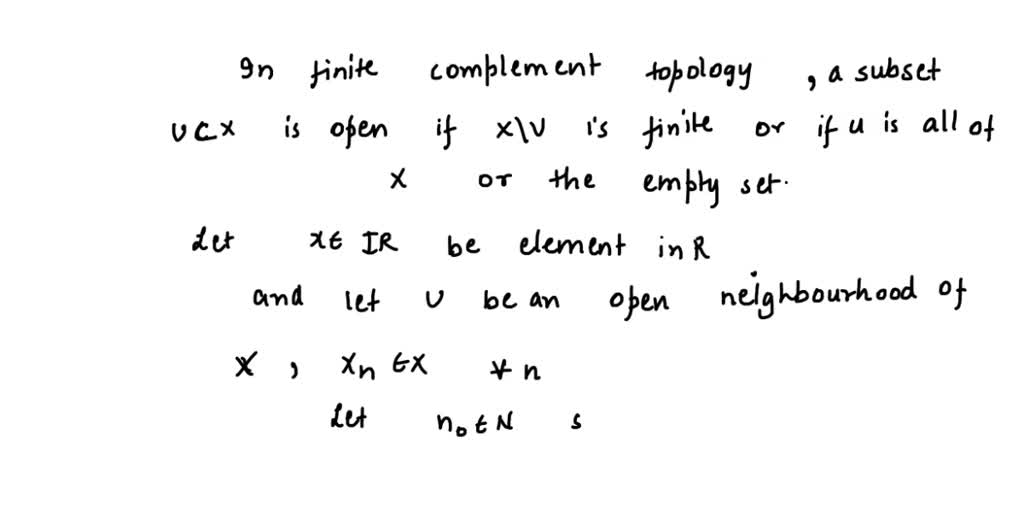 In finite complement topology , a subset
U⊂X is open if X\U is finite or if u is all of
X or the empty set.
Let x∈ IR be element in R
and let U be an open neighbourhood of
X , Xn ∈X ∀ n
Let n₀ ∈ N s